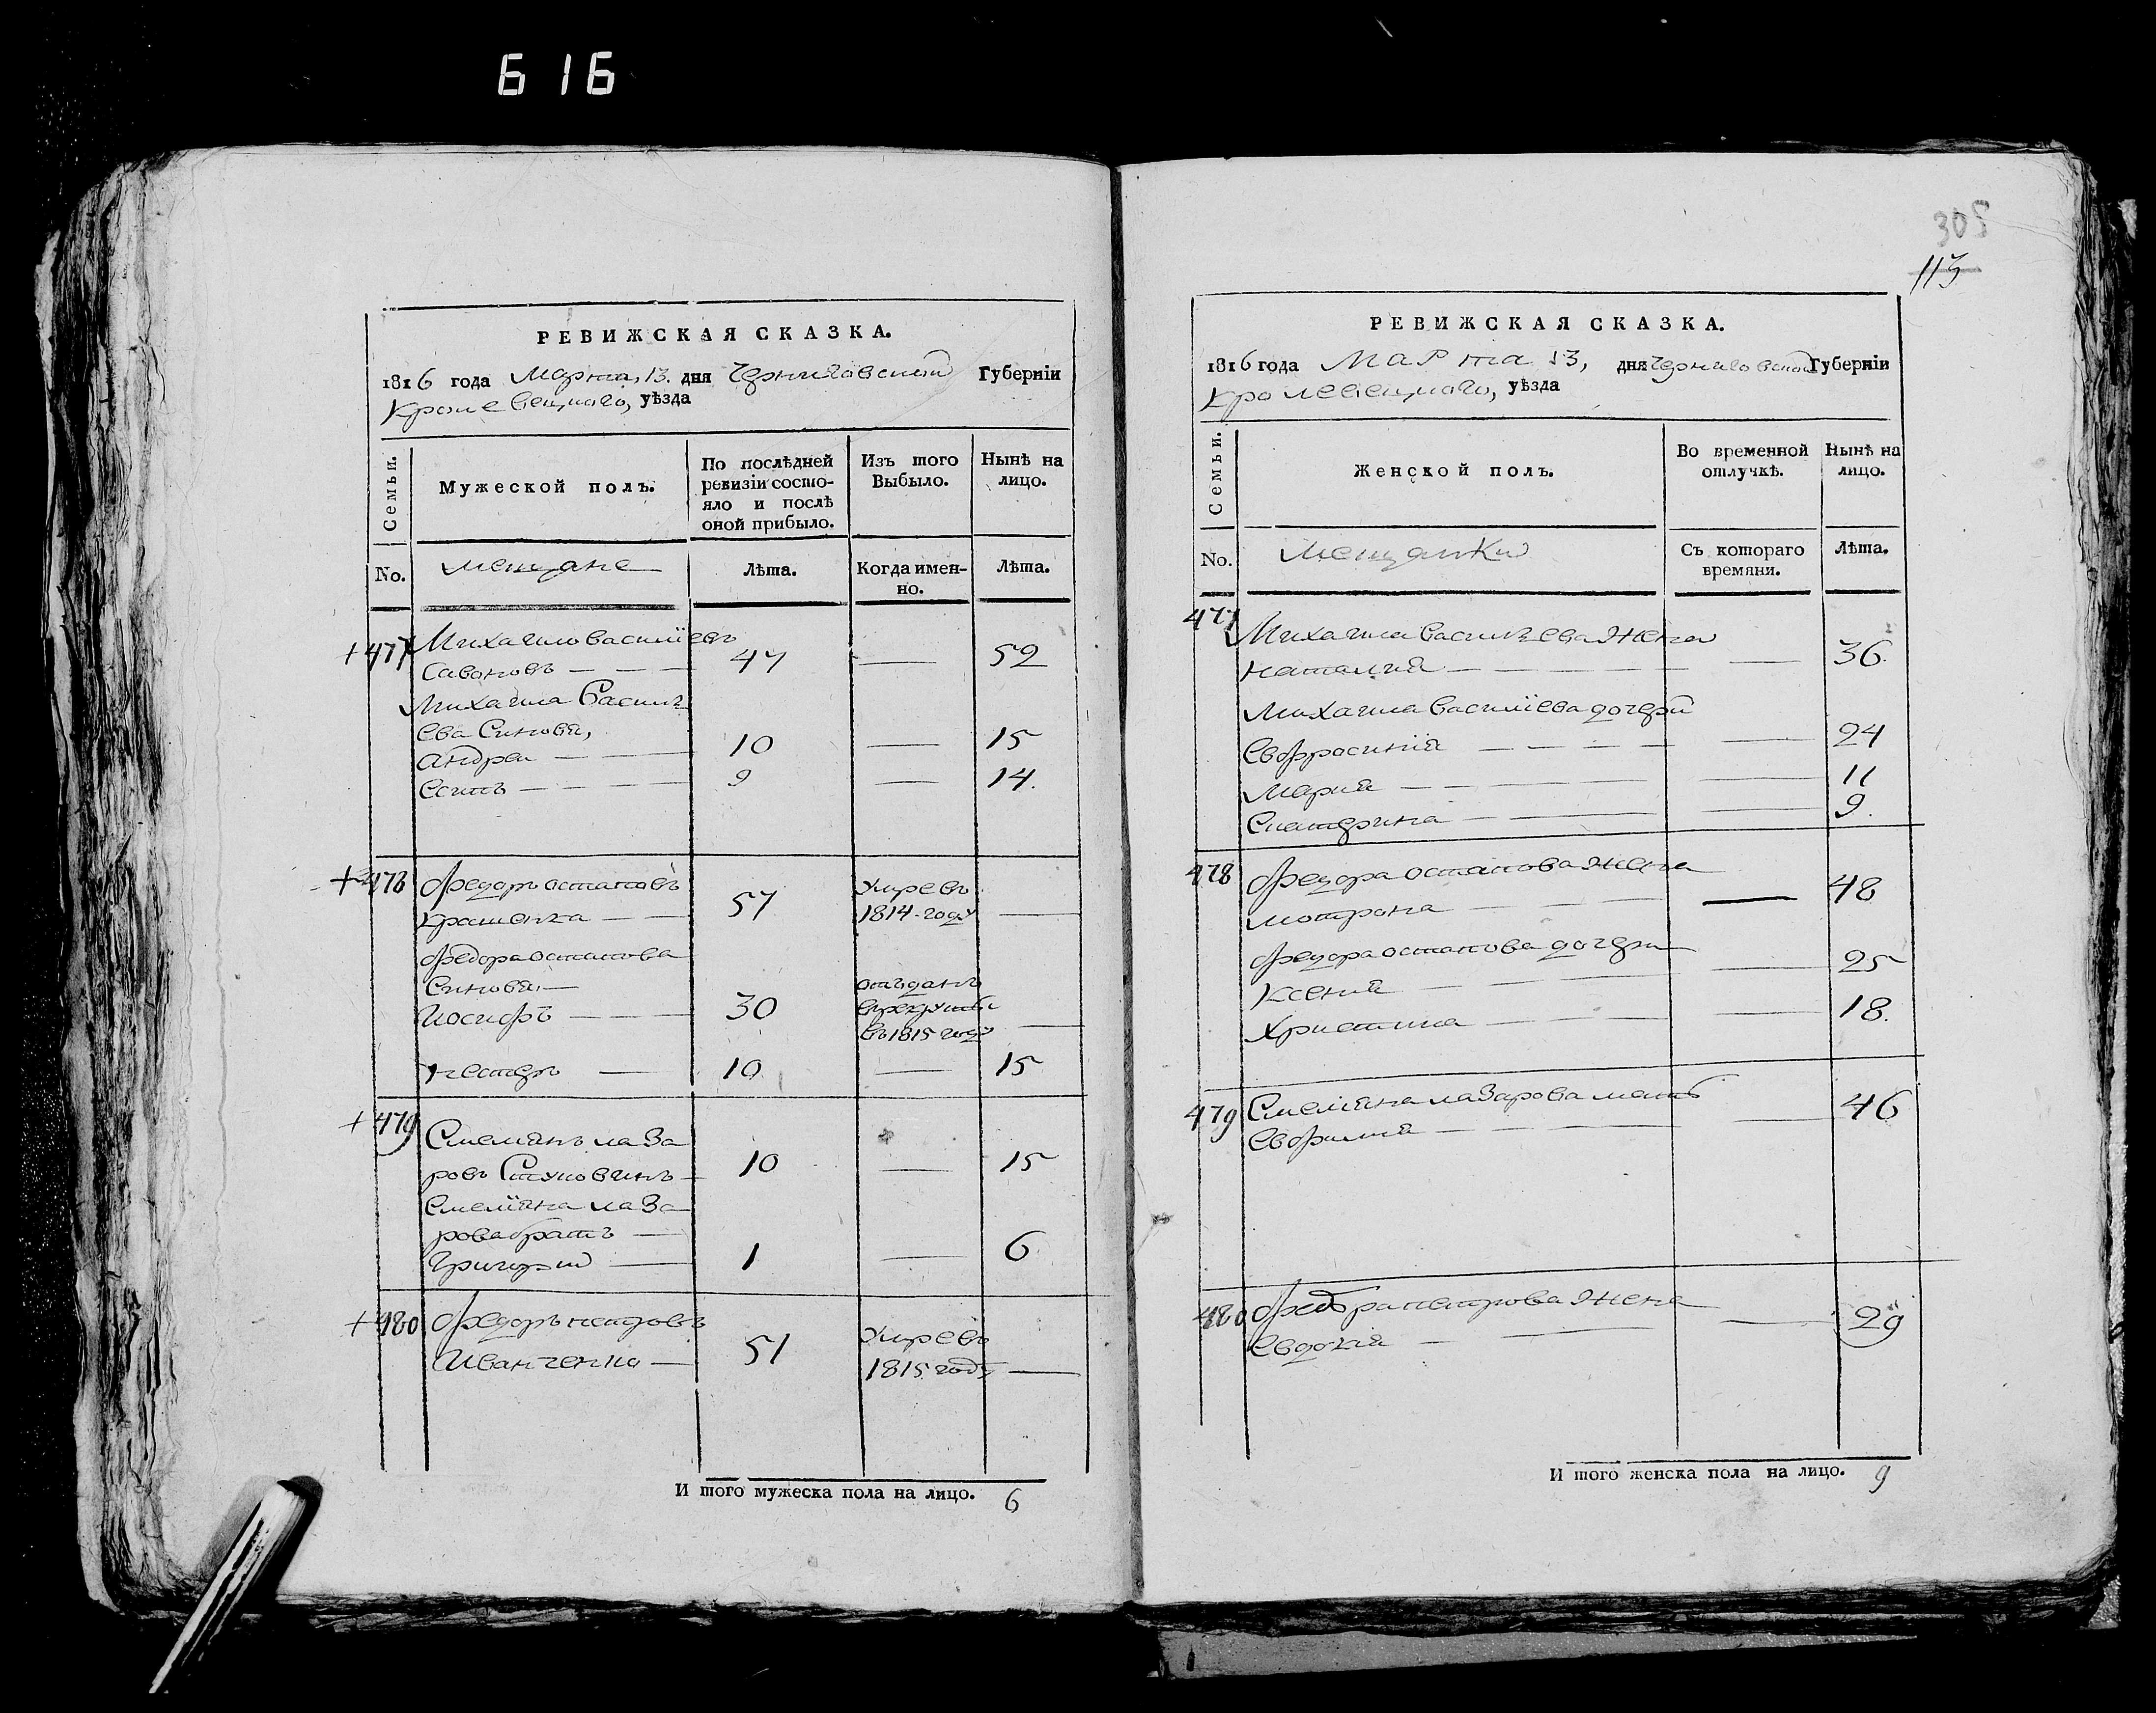 616
РЕВИЖСКАЯ СКАЗКА.
1816 года Марта, 13. дня Черниговской Губерніи
Кролевецкаго, уѣзда
Семьи.
Мужеской полъ.
По послѣдней ревизіи состо-
яло и послѣ оной прибыло.
Изъ того Выбыло.
Нынѣ на лицо.
No.
мещане
Лѣта.
Когда имен-
но.
Лѣта.
+ 477 Михаило Василіевъ
Савоновъ — 47 — 52
Михаила Василъ
ева Синовья,
Андреи — 10 — 15
Есипъ — 9 — 14.
+ 478 Федоръ Остаповъ
Крашенка — 57 Умре въ 1814-году —
Федора Остапова
Синовья —
Иосифъ — 30 отъданъ в рекруты въ 1815 году —
Нестеръ — 10 — 15
+ 479 Емеліянъ Лаза
ровъ — 10 — 15
Емеліяна Лаза
рова братъ —
Григорий — 1 — 6
+ 480 Федоръ Петровъ
Иванченко — 51 Умре въ 1815 году —
И того мужеска пола на лицо. 6
305
113
РЕВИЖСКАЯ СКАЗКА.
1816 года Марта 13, дня Черниговской Губерніи
Кролевецкаго, уѣзда
Семьи.
Женской полъ.
Во временной отлучкѣ.
Нынѣ на лицо.
No.
мещанки
Съ котораго времяни.
Лѣта.
477 Михаила Василъева Жена
Наталия — — 36.
Михаила Василіева дочери
Евфросиния — — 24
Мария — — 11
Екатерина — — 9.
478 Федора Остапова Жена
Мотрона — — 48
Федора Остапова дочери
Ксения — — 25
Христина — — 18.
479 Емеліяна Лазарова мать
Евфимия — — 46
480 Федора Петрова Жена
Евдокия — — 29
И того женска пола на лицо. 9